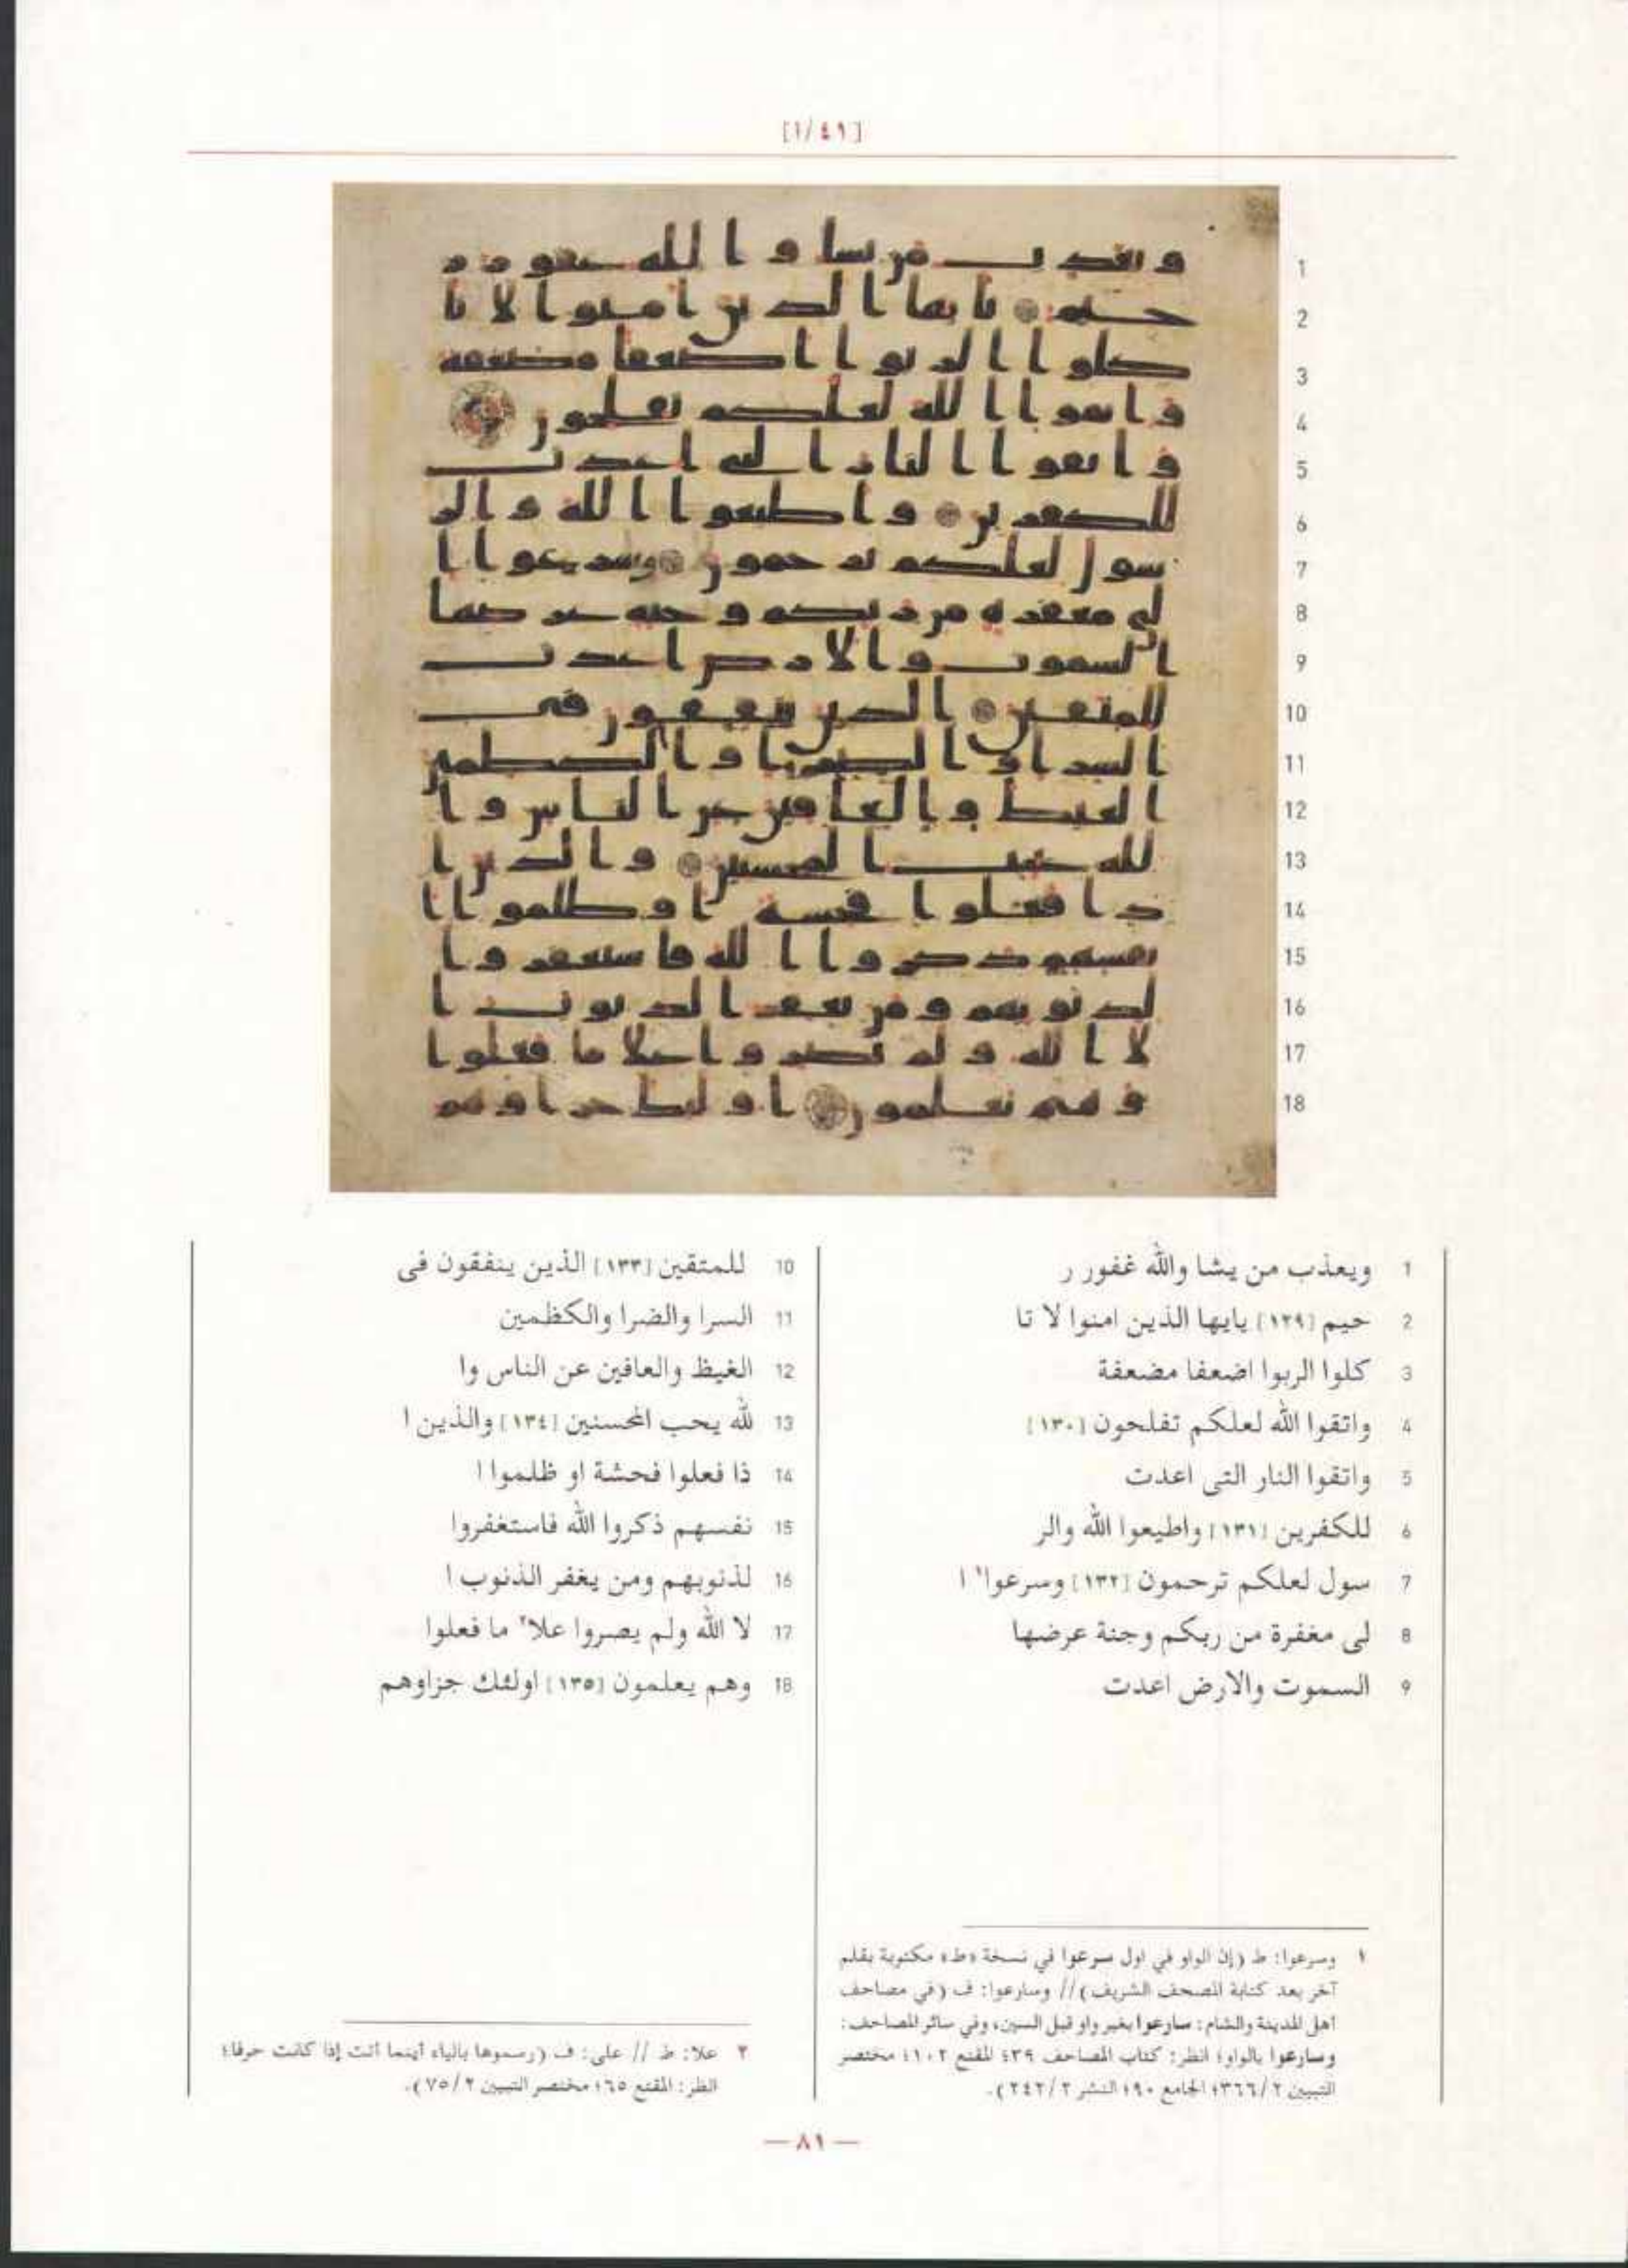 [١/٤١]
1 ويعذب من يشا والله غفور ر
2 حيم [١٢٩] يايها الذين امنوا لا تا
3 كلوا الربوا اضعفا مضعفة
4 واتقوا الله لعلكم تفلحون [١٣٠]
5 واتقوا النار التى اعدت
6 للكفرين [١٣١] واطيعوا الله والر
7 سول لعلكم ترحمون [١٣٢] وسرعوا١ ا
8 لى مغفرة من ربكم وجنة عرضها
9 السموت والارض اعدت
10 للمتقين [١٣٣] الذين ينفقون فى
11 السرا والضرا والكظمين
12 الغيظ والعافين عن الناس وا
13 لله يحب المحسنين [١٣٤] والذين ا
14 ذا فعلوا فحشة او ظلموا ا
15 نفسهم ذكروا الله فاستغفروا
16 لذنوبهم ومن يغفر الذنوب ا
17 لا الله ولم يصروا علا٢ ما فعلوا
18 وهم يعلمون [١٣٥] اولئك جزاوهم
١ وسرعوا: ط (إن الواو في اول سرعوا في نسخة «ط» مكتوبة بقلم
آخر بعد كتابة المصحف الشريف) // وسارعوا: ف (في مصاحف
اهل المدينة والشام: سارعوا بغير واو قبل السين، وفي سائر المصاحف:
وسارعوا بالواو؛ انظر: كتاب المصاحف ٤٣٩؛ المقنع ١٠٢؛ مختصر
التبيين ٣٦٦/٢؛ الجامع ٩٠؛ النشر ٢٤٢/٢).
٢ علا: ط // على: ف (رسموها بالياء أينما أتت إذا كانت حرفا؛
انظر: المقنع ٦٥؛ مختصر التبيين ٧٥/٢).
— ٨١ —